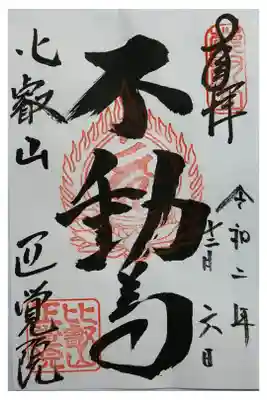 奉拝
令和二年
十二月六日
不動尊
比叡山 正覚院
比叡山
正覚院